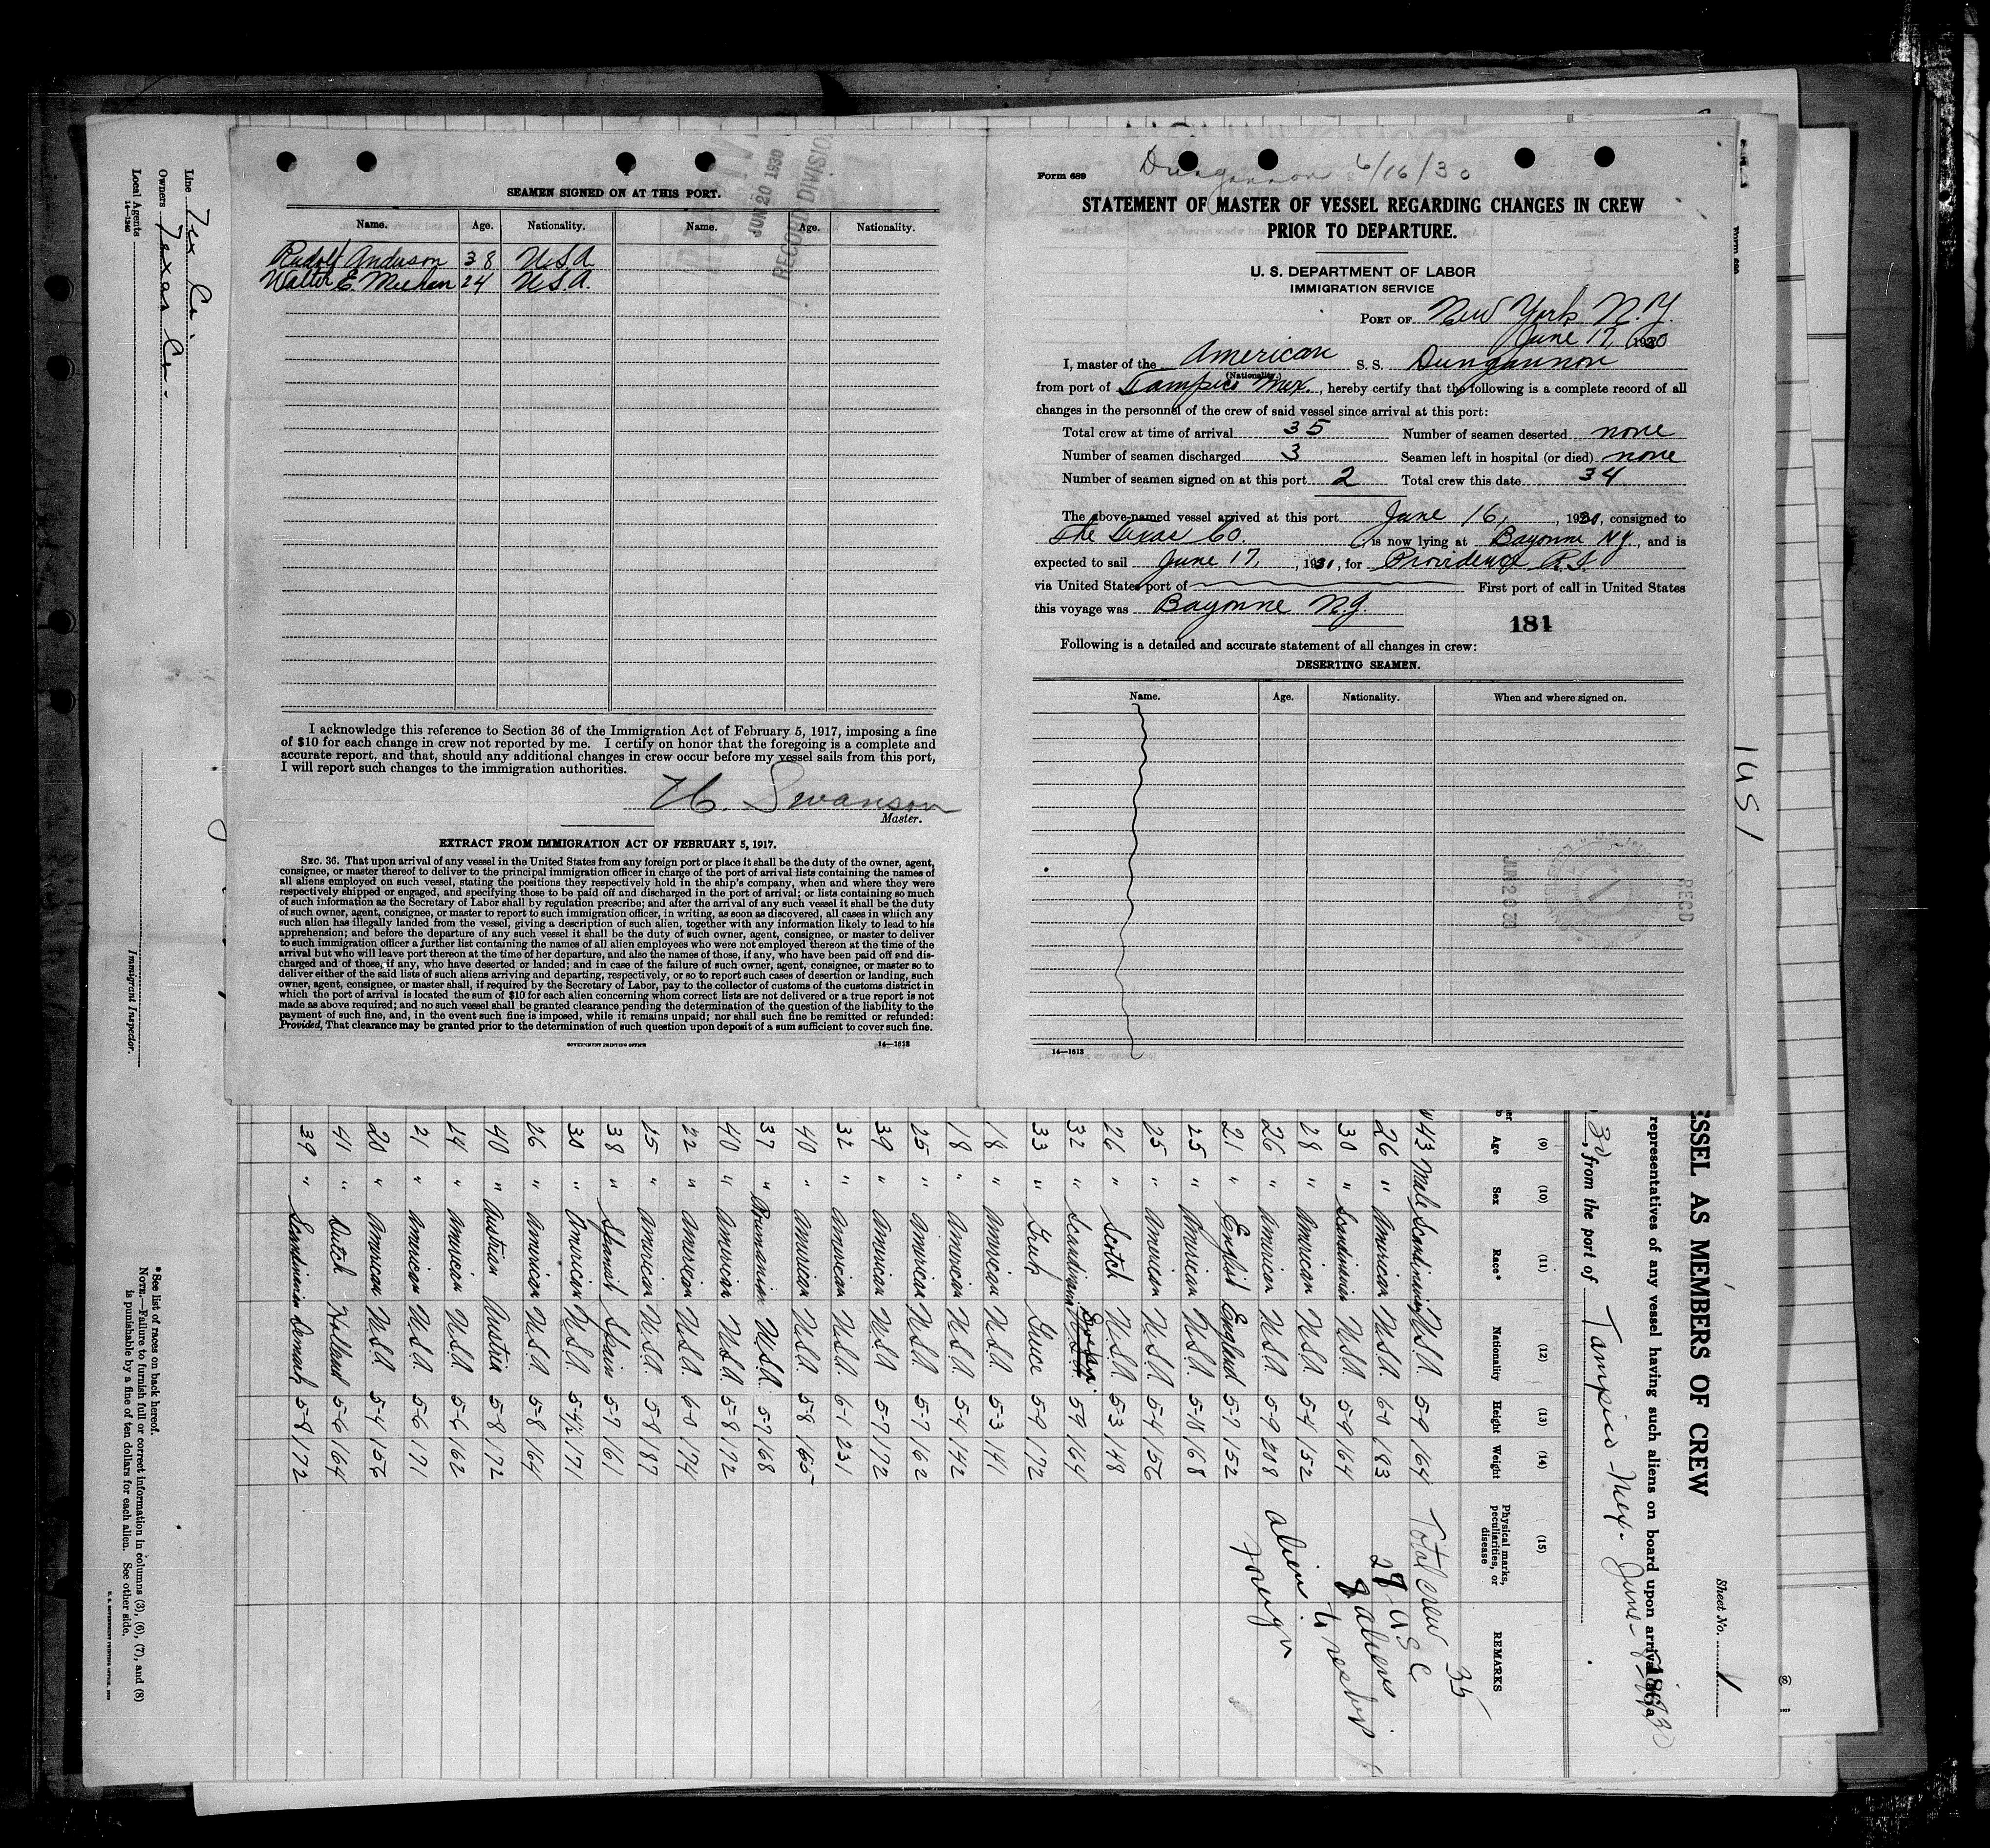 SEAMEN SIGNED ON AT THIS PORT.
Name. Age. Nationality. Name. Age. Nationality.
Rudolf Anderson 38 U.S.A.
Walter E. Meehan 24 U.S.A.
JUN 20 1930
RECORD DIVISION
I acknowledge this reference to Section 36 of the Immigration Act of February 5, 1917, imposing a fine
of $10 for each change in crew not reported by me. I certify on honor that the foregoing is a complete and
accurate report, and that, should any additional changes in crew occur before my vessel sails from this port,
I will report such changes to the immigration authorities.
H. Swanson
Master.
EXTRACT FROM IMMIGRATION ACT OF FEBRUARY 5, 1917.
SEC. 36. That upon arrival of any vessel in the United States from any foreign port or place it shall be the duty of the owner, agent,
consignee, or master thereof to deliver to the principal immigration officer in charge of the port of arrival lists containing the names of
all aliens employed on such vessel, stating the positions they respectively hold in the ship's company, when and where they were
respectively shipped or engaged, and specifying those to be paid off and discharged in the port of arrival; or lists containing so much
of such information as the Secretary of Labor shall by regulation prescribe; and after the arrival of any such vessel it shall be the duty
of such owner, agent, consignee, or master to report to such immigration officer, in writing, as soon as discovered, all cases in which any
such alien has illegally landed from the vessel, giving a description of such alien, together with any information likely to lead to his
apprehension; and before the departure of any such vessel it shall be the duty of such owner, agent, consignee, or master to deliver
to such immigration officer a further list containing the names of all alien employees who were not employed thereon at the time of the
arrival but who will leave port thereon at the time of her departure, and also the names of those, if any, who have been paid off and dis-
charged and of those, if any, who have deserted or landed; and in case of the failure of such owner, agent, consignee, or master so to
deliver either of the said lists of such aliens arriving and departing, respectively, or so to report such cases of desertion or landing, such
owner, agent, consignee, or master shall, if required by the Secretary of Labor, pay to the collector of customs of the customs district in
which the port of arrival is located the sum of $10 for each alien concerning whom correct lists are not delivered or a true report is not
made as above required; and no such vessel shall be granted clearance pending the determination of the question of the liability to the
payment of such fine, and, in the event such fine is imposed, while it remains unpaid; nor shall such fine be remitted or refunded:
Provided, That clearance may be granted prior to the determination of such question upon deposit of a sum sufficient to cover such fine.
GOVERNMENT PRINTING OFFICE 14—1613
Dungannon 6/16/30
Form 689
STATEMENT OF MASTER OF VESSEL REGARDING CHANGES IN CREW
PRIOR TO DEPARTURE.
U. S. DEPARTMENT OF LABOR
IMMIGRATION SERVICE
PORT OF New York N.Y.
June 17, 1930
I, master of the American S. S. Dungannon
(Nationality.)
from port of Tampico Mex., hereby certify that the following is a complete record of all
changes in the personnel of the crew of said vessel since arrival at this port:
Total crew at time of arrival 35 Number of seamen deserted none
Number of seamen discharged 3 Seamen left in hospital (or died) none
Number of seamen signed on at this port 2 Total crew this date 34
The above-named vessel arrived at this port June 16, , 1930, consigned to
The Texas Co. , is now lying at Bayonne NJ, and is
expected to sail June 17, , 1930, for Providence R.I.
via United States port of First port of call in United States
this voyage was Bayonne N.J.
181
Following is a detailed and accurate statement of all changes in crew:
DESERTING SEAMEN.
Name. Age. Nationality. When and where signed on.
RECD
14—1613
Line Tex Co.
Owners Texas Co.
Local Agents
14—1240
Immigrant Inspector.
* See list of races on back hereof.
NOTE.—Failure to furnish full or correct information in columns (3), (6), (7), and (8)
is punishable by a fine of ten dollars for each alien. See other side.
Sheet No. 1
ESSEL AS MEMBERS OF CREW
representatives of any vessel having such aliens on board upon arrival
30, from the port of Tampico - Mex - June
(9) (10) (11) (12) (13) (14) (15)
Age Sex Race* Nationality Height Weight Physical marks, peculiarities, or disease REMARKS
43 Male Scandinavian U.S.A. 5-9 164
26 " American U.S.A. 6-0 183
30 " Scandinavian U.S.A. 5-9 164
28 " American U.S.A. 5-4 152
26 " American U.S.A. 5-9 208
21 " English England 5-7 152
25 " American U.S.A. 5-10 168
25 " American U.S.A. 5-4 156
26 " Scotch U.S.A. 5-3 148
32 " Scandinavian 5-9 164
33 " Greek Greece 5-9 172
18 " American U.S.A. 5-3 141
18 " American U.S.A. 5-4 142
25 " American U.S.A. 5-7 162
39 " American U.S.A. 5-7 172
32 " American U.S.A. 6-1 231
40 " American U.S.A. 5-8 165
37 " Roumanian U.S.A. 5-7 168
40 " American U.S.A. 5-8 172
22 " American U.S.A. 6-0 174
25 " American U.S.A. 5-8 187
38 " Spanish Spain 5-7 161
30 " American U.S.A. 5-4½ 171
26 " American U.S.A. 5-8 164
40 " Austrian Austria 5-8 172
24 " American U.S.A. 5-6 162
21 " American U.S.A. 5-6 171
20 " American U.S.A. 5-4 156
41 " Dutch Holland 5-6 164
39 " Scandinavian Denmark 5-8 172
Total crew 35
27 U S C
8 aliens
alien
foreign